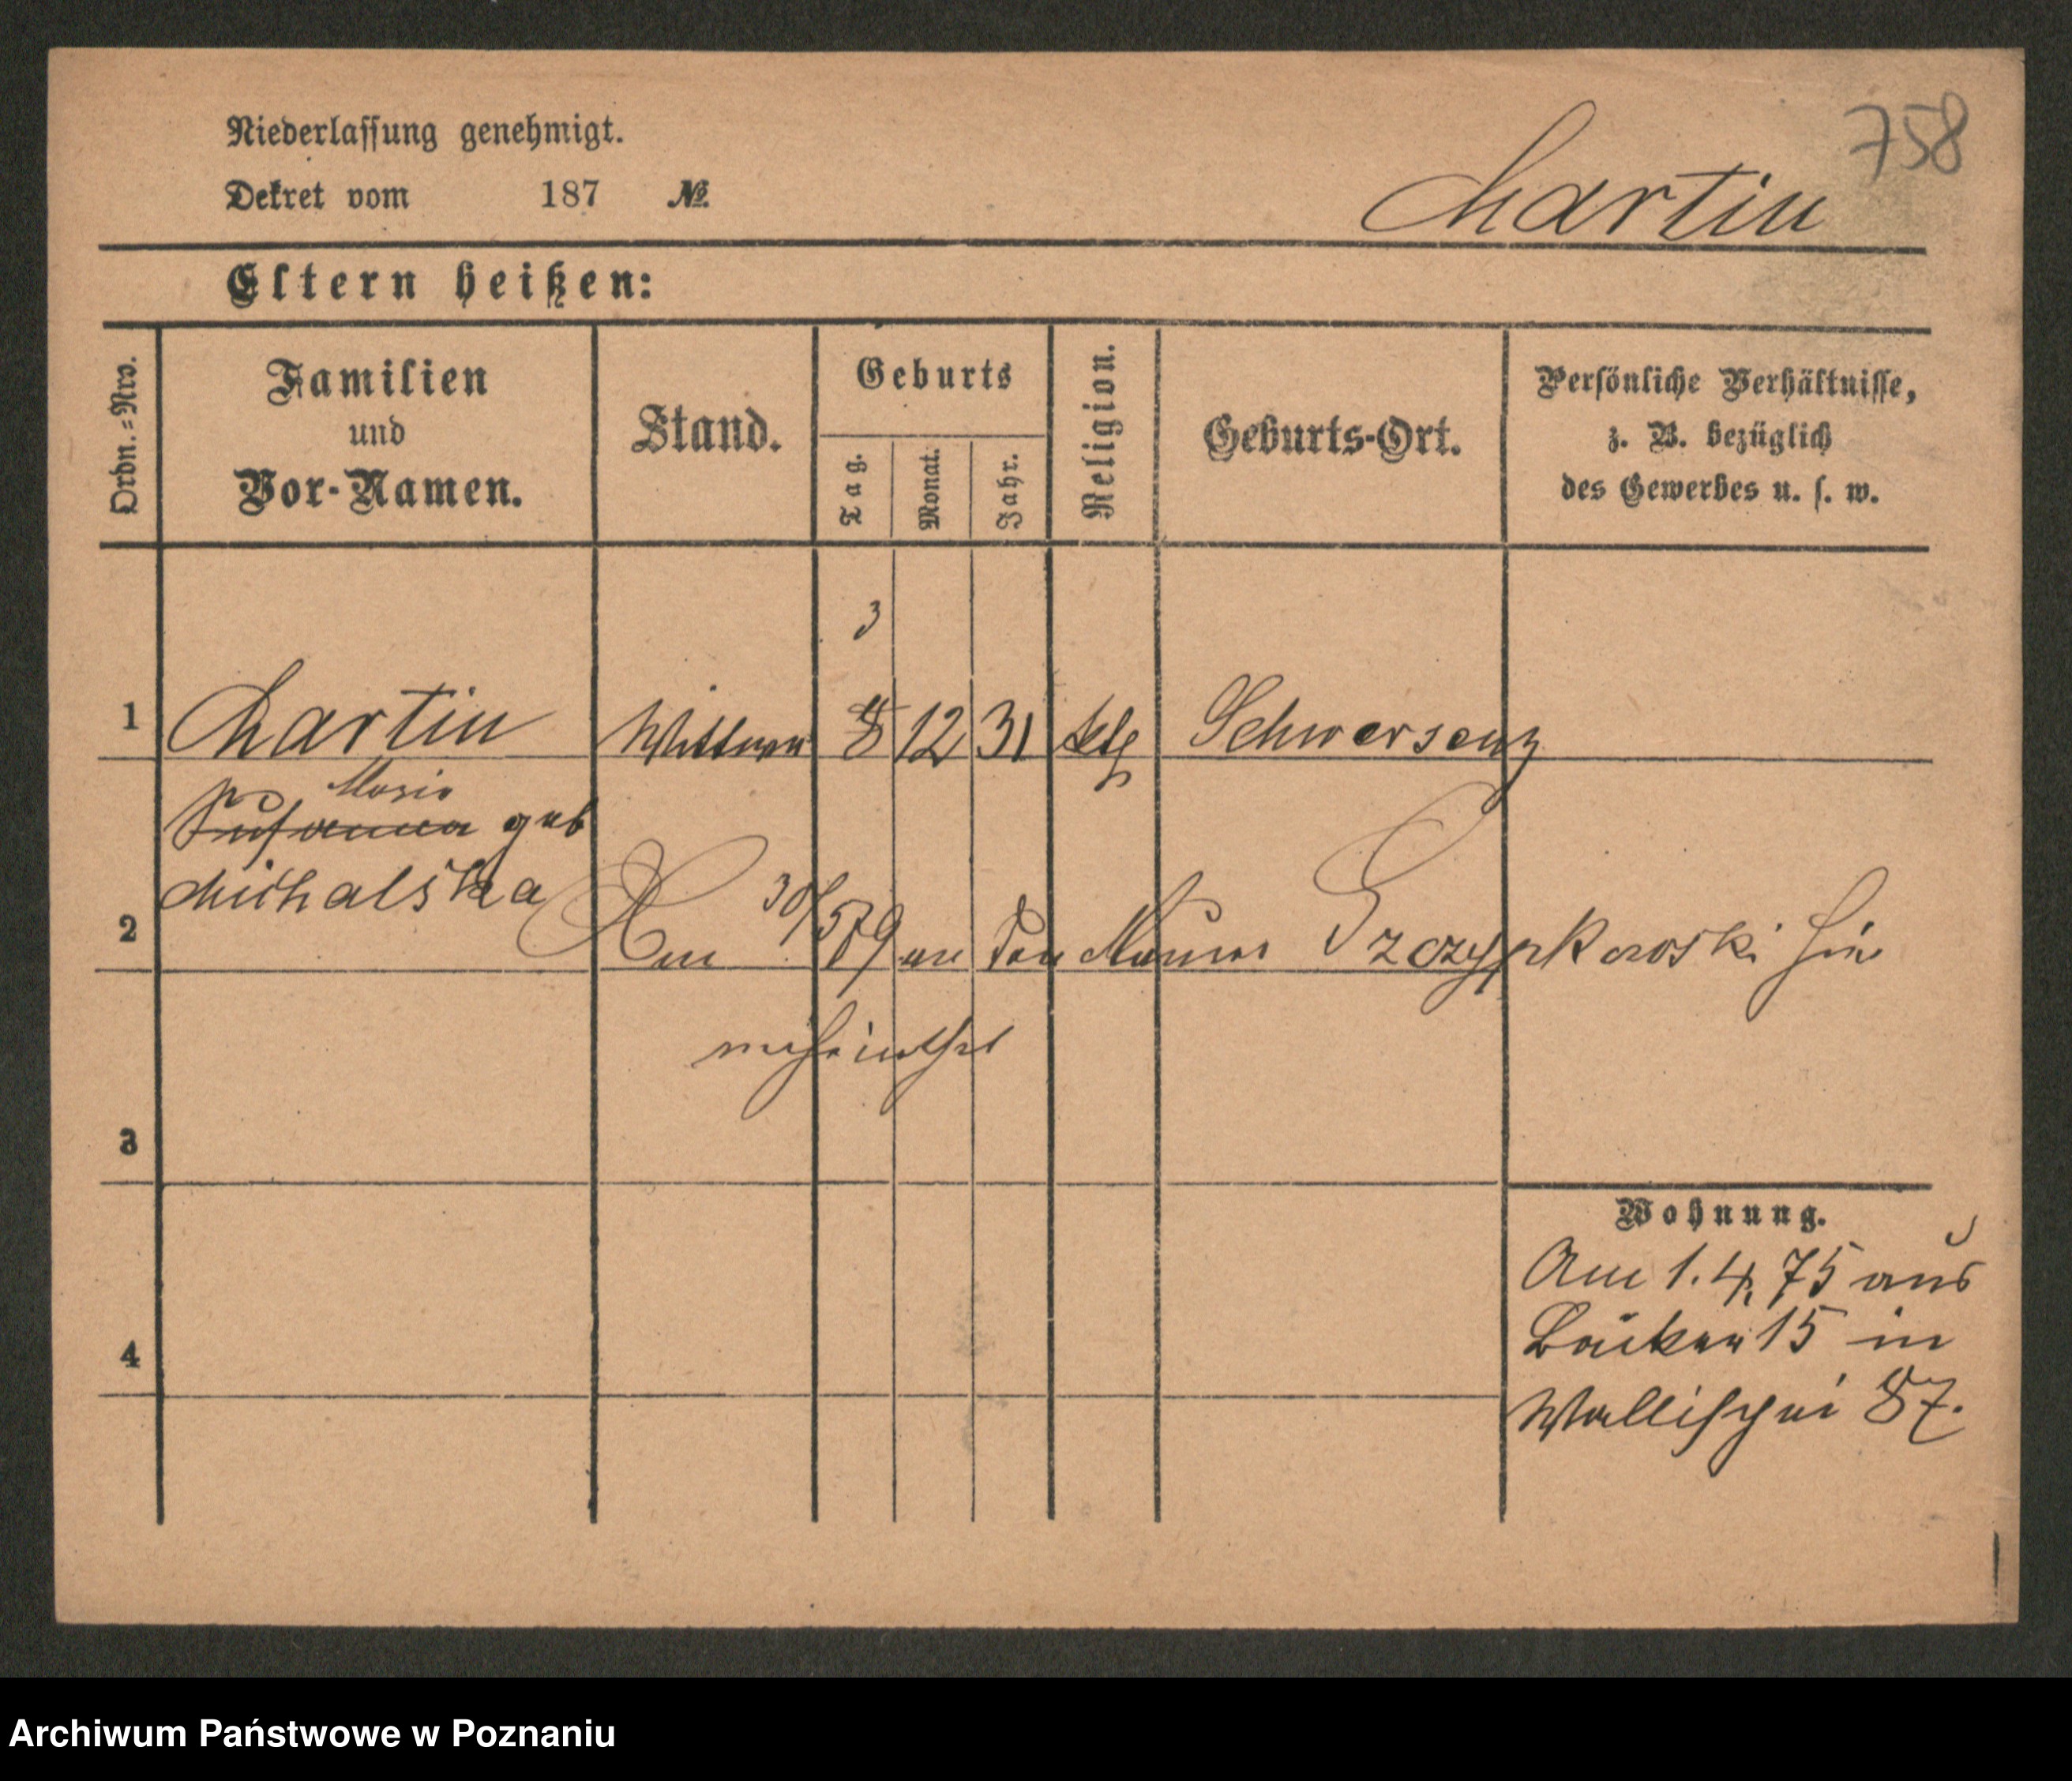 758
Niederlassung genehmigt.
Dekret vom 187 №
Martin
Eltern heißen:
Ordn.=Nro.
Familien
und
Vor-Namen.
Stand.
Geburts
Tag.
Monat.
Jahr.
Religion.
Geburts-Ort.
Persönliche Verhältnisse,
z. B. bezüglich
des Gewerbes u. s. w.
3
1 Martin Wittwe 8 12 31 kth Schwersenz
Maria
Susanna geb
Michalska
2 Am 30/5 79 an den Maurer Szczypkowski hier
verheirathet
3
Wohnung.
Am 1. 4. 75 aus
Bäcker 15 in
4
Wallischei 87.
Archiwum Państwowe w Poznaniu